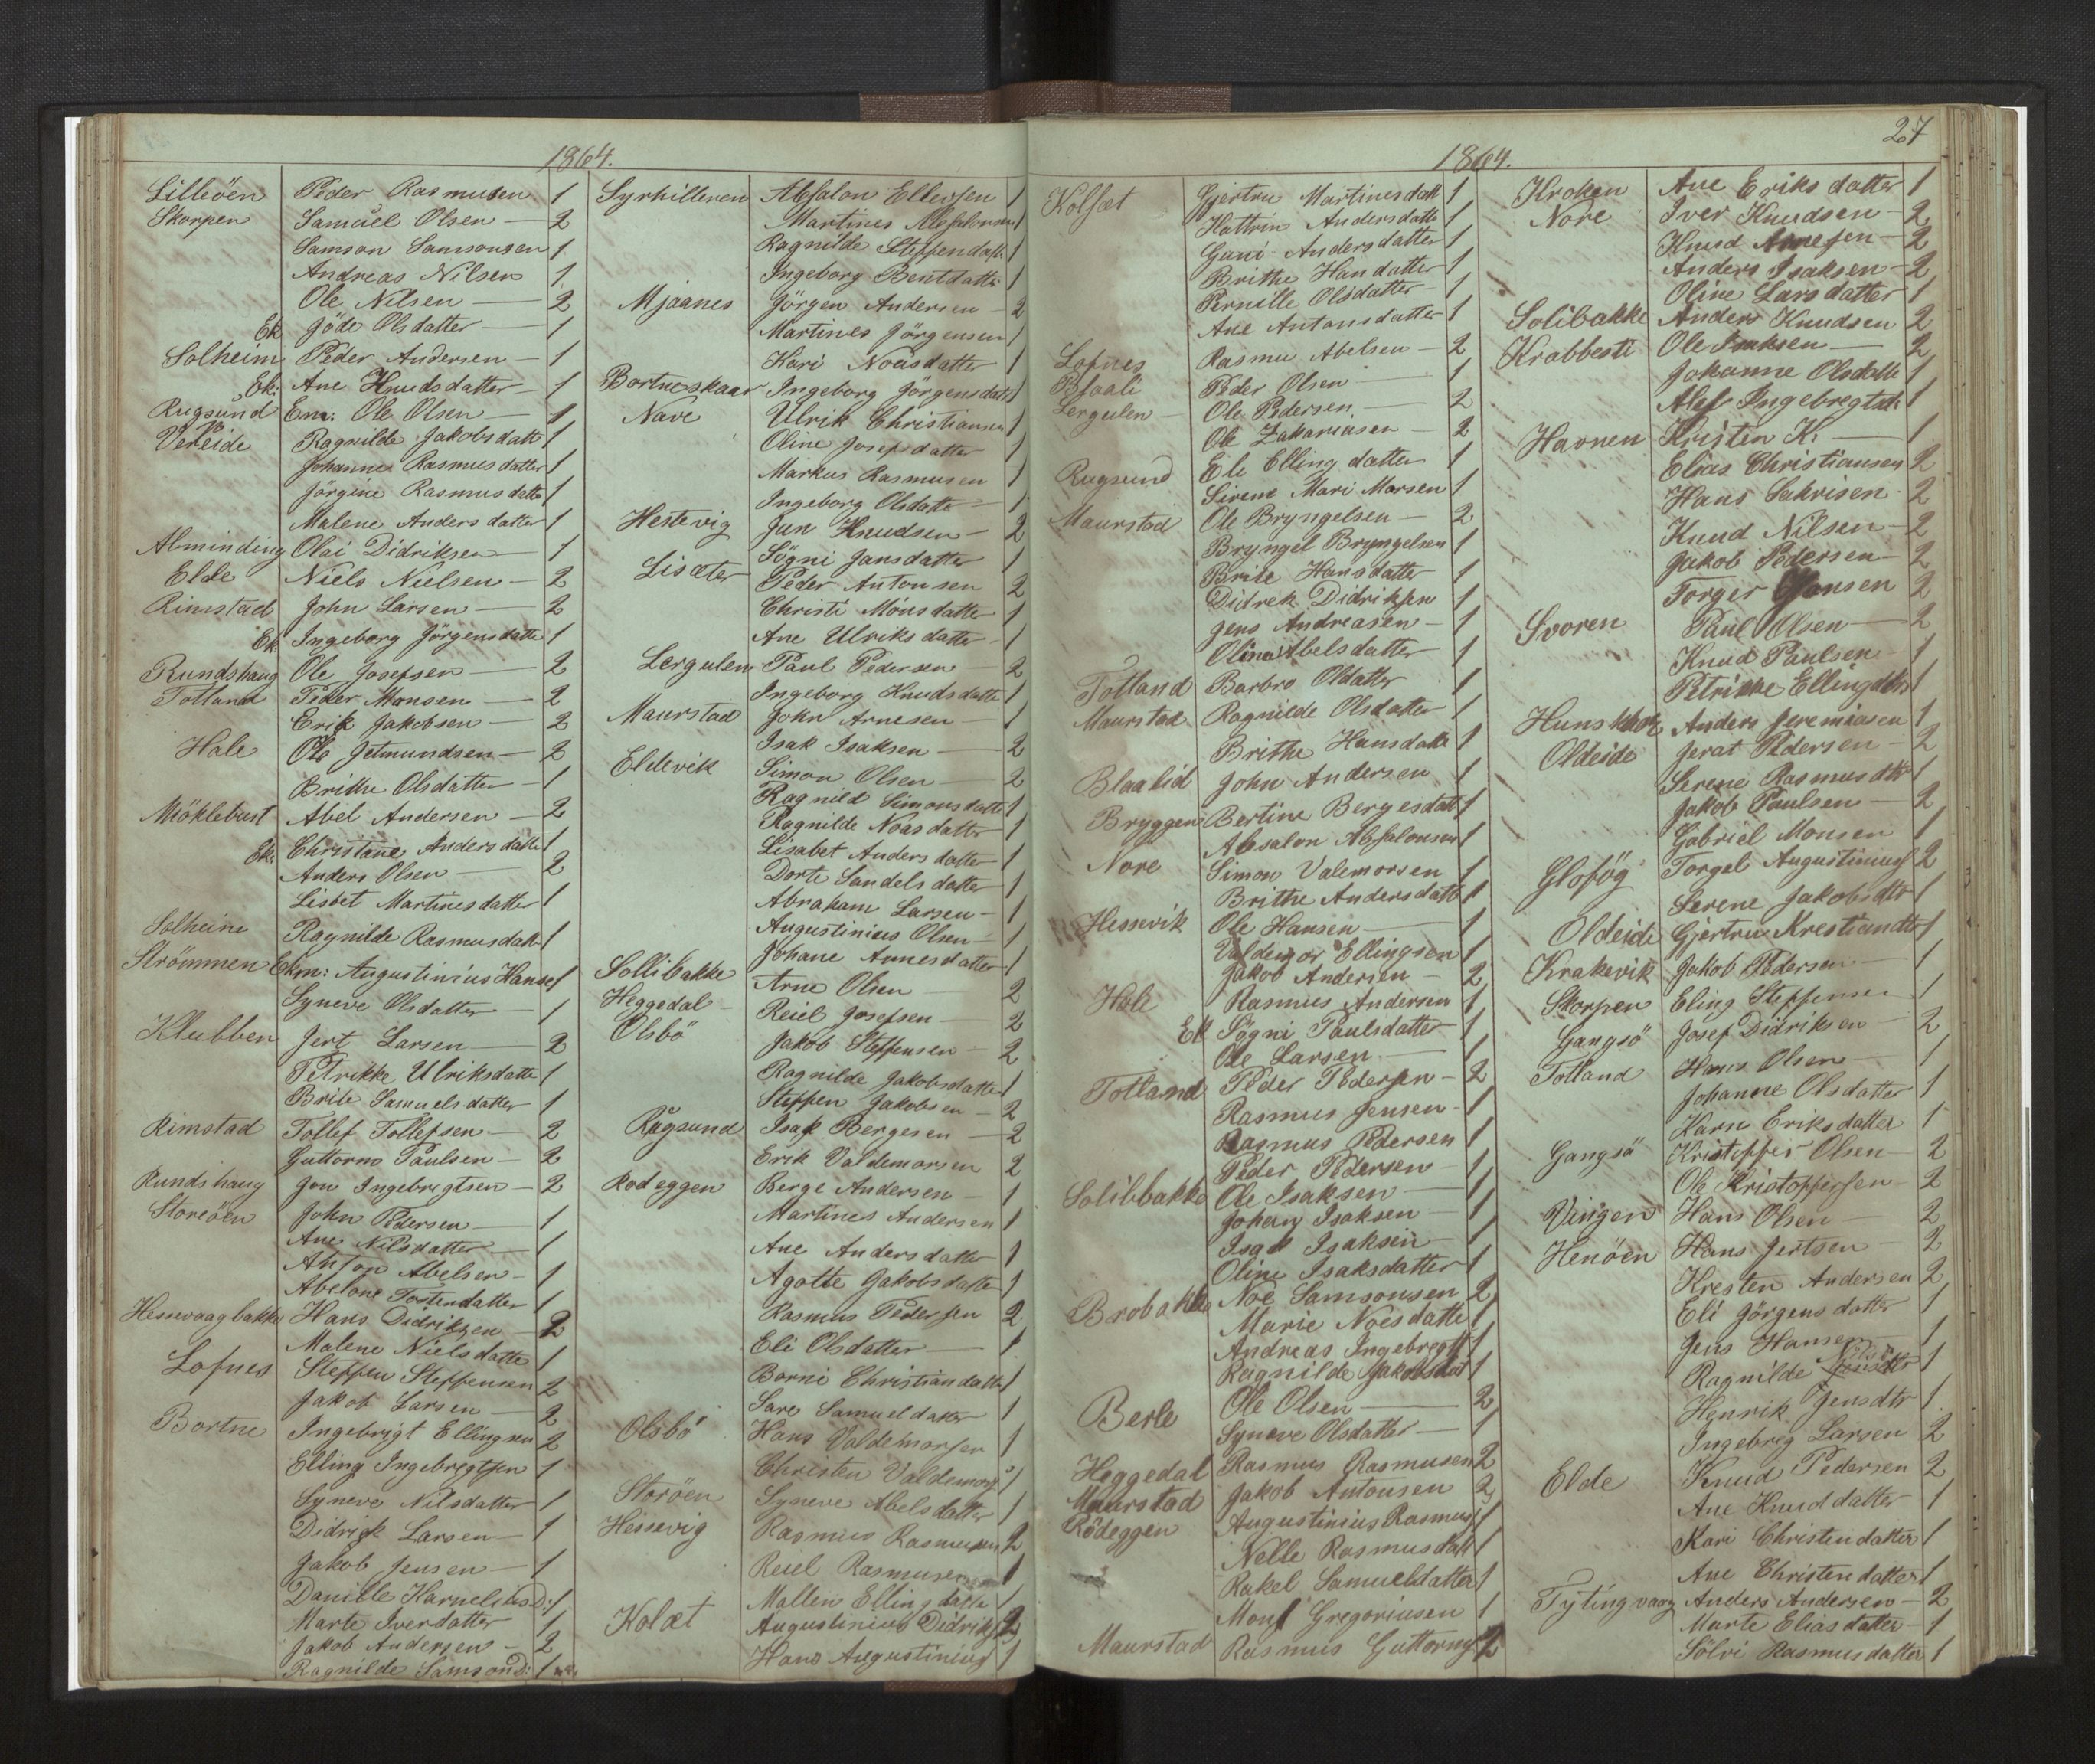 1864.
Lilleöen Peder Rasmusen 1
Skorpen Samuel Olsen — 2
Samson Samsonsen 1
Andreas Nilsen 1
Ole Nilsen — 2
Ek Jöde Olsdatter — 1
Solheim Peder Andersen — 1
Ek: Ane Knudsdatter — 1
Rugsund Em: Ole Olsen — 1
Vereide Ragnilde Jakobsdatt 1
Johanne Rasmusdatter 1
Jörgine Rasmusdatte 1
Malene Andersdatter 1
Alminding Olai Didriksen — 1
Elde Niels Nielsen — 2
Rimstad John Larsen — 2
Ek Ingeborg Jörgensdatte 1
Rundshaug Ole Josefsen — 2
Totland Peder Monsen — 2
Erik Jakobsen — 2
Hole Ole Jetmundsen — 2
Brithe Olsdatter — 1
Möklebust Abel Andersen — 2
Ek. Christane Andersdatte 1
Anders Olsen — 2
Lisbet Martinesdatter 1
Solheim Ragnilde Rasmusdatt 1
Strömmen Ekm: Augustinius Hanse 1
Syneve Olsdatter — 1
Klubben Jert Larsen — 2
Petrikke Ulriksdatte 1
Brite Samuelsdatter 1
Rimstad Tollef Tollefsen — 2
Guttorm Paulsen — 2
Rundshaug Jon Ingebrigtsen — 2
Storeöen John Pedersen — 1
Ane Nilsdatter — 1
Anton Abelsen — 1
Abelone Tostendatter 1
Hessevaagbakke Hans Didriksen — 2
Malene Nielsdatte 1
Lofnes Steffen Steffensen 2
Jakob Larsen — 2
Bortne Ingebrigt Ellingsen 2
Elling Ingebregtsen 1
Syneve Nilsdatter 1
Didrik Larsen — 1
Jakob Jensen — 1
Danille Karnelius D: 1
Marte Iverdatter 1
Jakob Andersen — 2
Ragnilde Samson D: 1
Syrhilleren Absalon Ellefsen 1
Martines Absalonsen 1
Ragnilde Steffendatt 1
Ingeborg Bentdatte 1
Mjaanes Jörgen Andersen — 2
Martines Jörgensen 1
Kari Noasdatter 1
Bortneskaar Ingeborg Jörgensdatt 1
Nave Ulrik Christiansen 1
Oline Josefsdatter 1
Markus Rasmusen 1
Ingeborg Olsdatte 1
Hestevig Jan Knudsen — 2
Sögni Jansdatter 1
Lisæter Peder Antonsen 2
Christi Mönsdatte 1
Ane Ulriksdatter — 1
Lergulen Paul Pedersen — 2
Ingeborg Knudsdatte 1
Maurstad John Arnesen — 1
Isak Isaksen — 2
Eldevik Simon Olsen — 2
Ragnild Simonsdatte 1
Ragnilde Noasdatter 1
Lisabet Andersdatte 1
Dorte Sandelsdatte 1
Abraham Larsen — 1
Augustinius Olsen — 1
Johane Annesdatter 1
Sollibakke Arne Olsen 2
Heggedal — Reiel Josefsen — 2
Olsbö Jakob Steffensen — 2
Ragnilde Jakobsdatte 1
Steffen Jakobsen — 2
Rugsund Isak Bergesen — 2
Erik Valdemorsen 2
Rodeggen Berge Andersen — 1
Martines Andersen 1
Ane Andersdatte 1
Agatte Jakobsdatte 1
Rasmus Pedersen 2
Eli Olsdatter — 1
Borni Christiandatte 1
Sare Samueldatter 1
Olsbö Hans Valdemorsen 1
Christen Valdemors: 1
Storöen Syneve Abelsdatter 1
Hessevig Rasmus Rasmusen 2
Reiel Rasmusen 1
Mallen Ellingdatte 1
Kolæt Augustinius Didriks 2
Hans Augustinius 1
27
1864.
Kolsæt Gjertru Martinesdatt 1
Kattrin Andersdatte 1
Guni Andersdatter 1
Brithe Handatter — 1
Pernille Olsdatter — 1
Ane Antonsdatter 1
Lofnes Rasmu Abelsen — 2
Blaali Peder Olsen — 1
Lergulen — Ole Pedersen — 2
Ole Zakariasen — 2
Rugsund Eli Ellingdatter 1
Sirene Mari Morsen 1
Maurstad Ole Bryngelsen — 2
Bryngel Bryngelsen 1
Brite Hansdatter 1
Didrek Didriksen 1
Jens Andreasen — 1
Olina Abelsdatter 1
Totland Barbro Oldatter 1
Maurstad Ragnilde Olsdatter 1
Brithe Hansdatte 1
Blaalid John Andersen 1
Bryggen Bertine Bergesdatt 1
Absalon Absalonsen 1
Nore Simon Valemorsen 1
Brithe Andersdatte 1
Hessevik Ole Hansen — 1
Valdemor Ellingsen 1
Jakob Andersen — 2
Hole Rasmus Andersen 1
Ek Sögni Paulsdatter 1
Ole Larsen — 1
Totland Peder Pedersen — 2
Rasmus Jensen — 1
Rasmus Pedersen 1
Peder Pedersen — 1
Solibakke Ole Isaksen — 1
Johan Isaksen — 1
Isak Isaksen — 1
Oline Isaksdatter 1
Brobakke Noe Samsonsen 2
Marie Noesdatte 1
Andreas Ingebregt 1
Ragnilde Jakobsdat 1
Berle Ole Olsen — 2
Syneve Olsdatter — 1
Heggedal Rasmus Rasmusen 2
Maurstad Jakob Antonsen 2
Rödeggen Augustinius Rasmus 1
Nelle Rasmusdatt 1
Rakel Samueldatter 1
Mons Gregoriusen 1
Maurstad Rasmus Guttorms 2
Kroken Ane Eriksdatter 1
Nore Iver Knudsen — 2
Knud Arnesen — 2
Anders Isaksen — 2
Oline Larsdatter 1
Solibakke Anders Knudsen 2
Krabbesti Ole Isaksen — 2
Johanne Olsdatte 1
Alef Ingebregtd: 1
Havnen Kristen K: — 1
Elias Christiansen 2
Hans Sakrisen 2
Knud Nilsen — 2
Jakob Pedersen — 2
Torger Hansen 2
Svoren Paul Olsen — 2
Knud Paulsen — 1
Petrikke Ellingdtr 1
Anders Jeremiasen 1
Oldeide Jerat Pedersen — 2
Serene Rasmusdtr 1
Jakob Paulsen — 2
Gabriel Monsen 1
Torgel Augustinius 2
Serene Jakobsdtr 1
Oldeide Gjertru Krestiandtr 1
Krakevik Jakob Pedersen — 1
Skorpen Eling Steffensen 1
Gangsö Josef Didriksen — 2
Totland Hans Olsen — 1
Johanne Olsdatter 1
Karn Eriksdatter 1
Gangsö Kristoffer Olsen — 2
Ole Kristoffersen — 2
Vingen Hans Olsen — 2
Henöen Hans Jertsen — 2
Kresten Andersen 2
Eli Jörgensdatter 1
Jens Hansen — 1
Ragnilde Nilsd 1
Henrik Jensdtr 1
Ingebreg Larsen 2
Elde Knud Pedersen 2
Ane Knuddatter 1
Kari Christendatter 1
Ane Christendatter 1
Tytingvaag Anders Andersen — 2
Marte Eliasdatter — 1
Sölvi Rasmusdatter 1